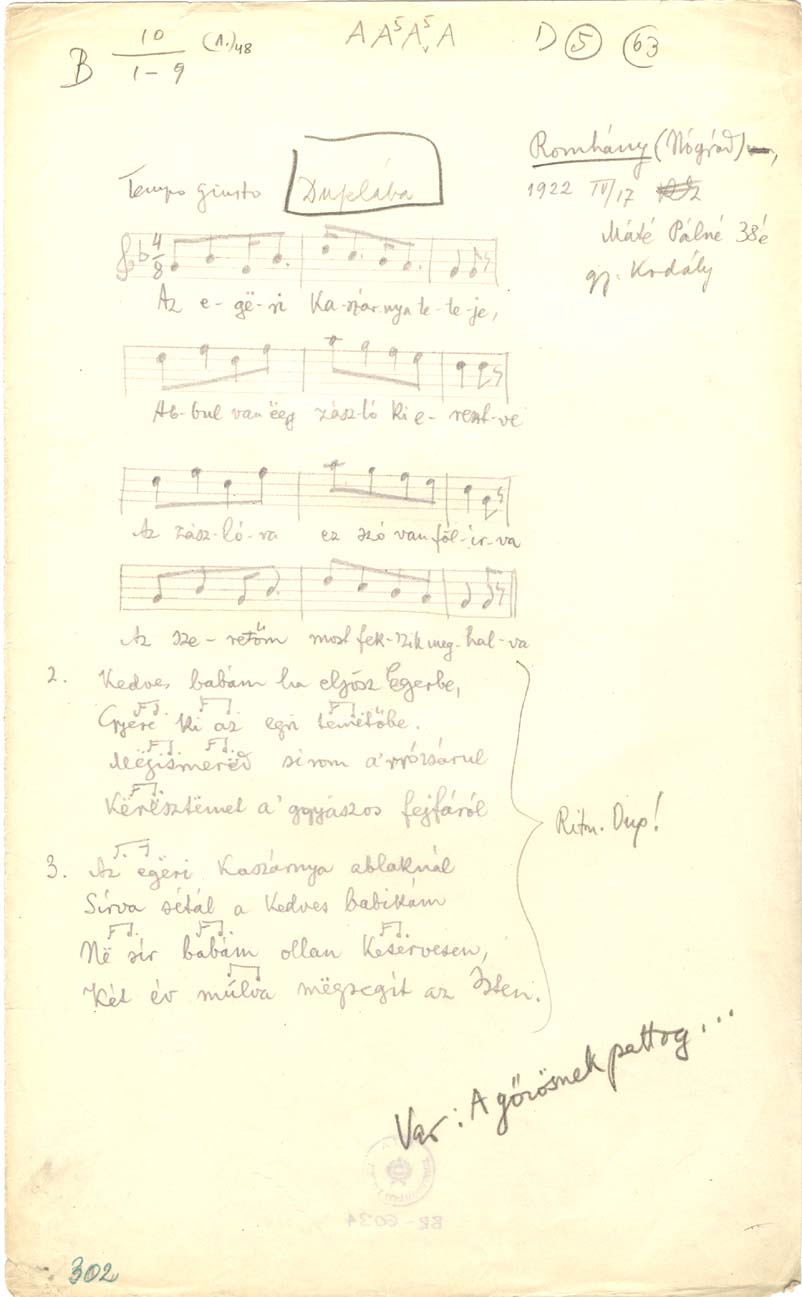 B 10/1-9 (A.)48 AA⁵A⁵ᵥA D 5 63
Romhány (Nógrád),
1922 IV/17
Máté Pálné 38é
gy. Kodály
Tempo giusto Duplába
4/8
Az e-gë-ri Ka-szár-nya te-te-je,
Ab-bul van ëeg zász-ló ki e-reszt-ve
Az zász-ló-ra ez szó van föl-ír-va
Az sze-retőm most fek-szik meg-hal-va
2. Kedves babám ha eljősz Egerbe,
Gyere ki az egri temetőbe.
Mëgismerëd sirom a' rrózsárul
Kërësztëmet a' ggyászos fejfáról
Ritm. Dup!
3. Az egëri Kaszárnya ablaknál
Sírva sétál a kedves babikám
Në sír babám ollan keservesen,
Két év múlva mëgsegít az Isten.
Var: A gőrösnek pattog...
BR-6034
302